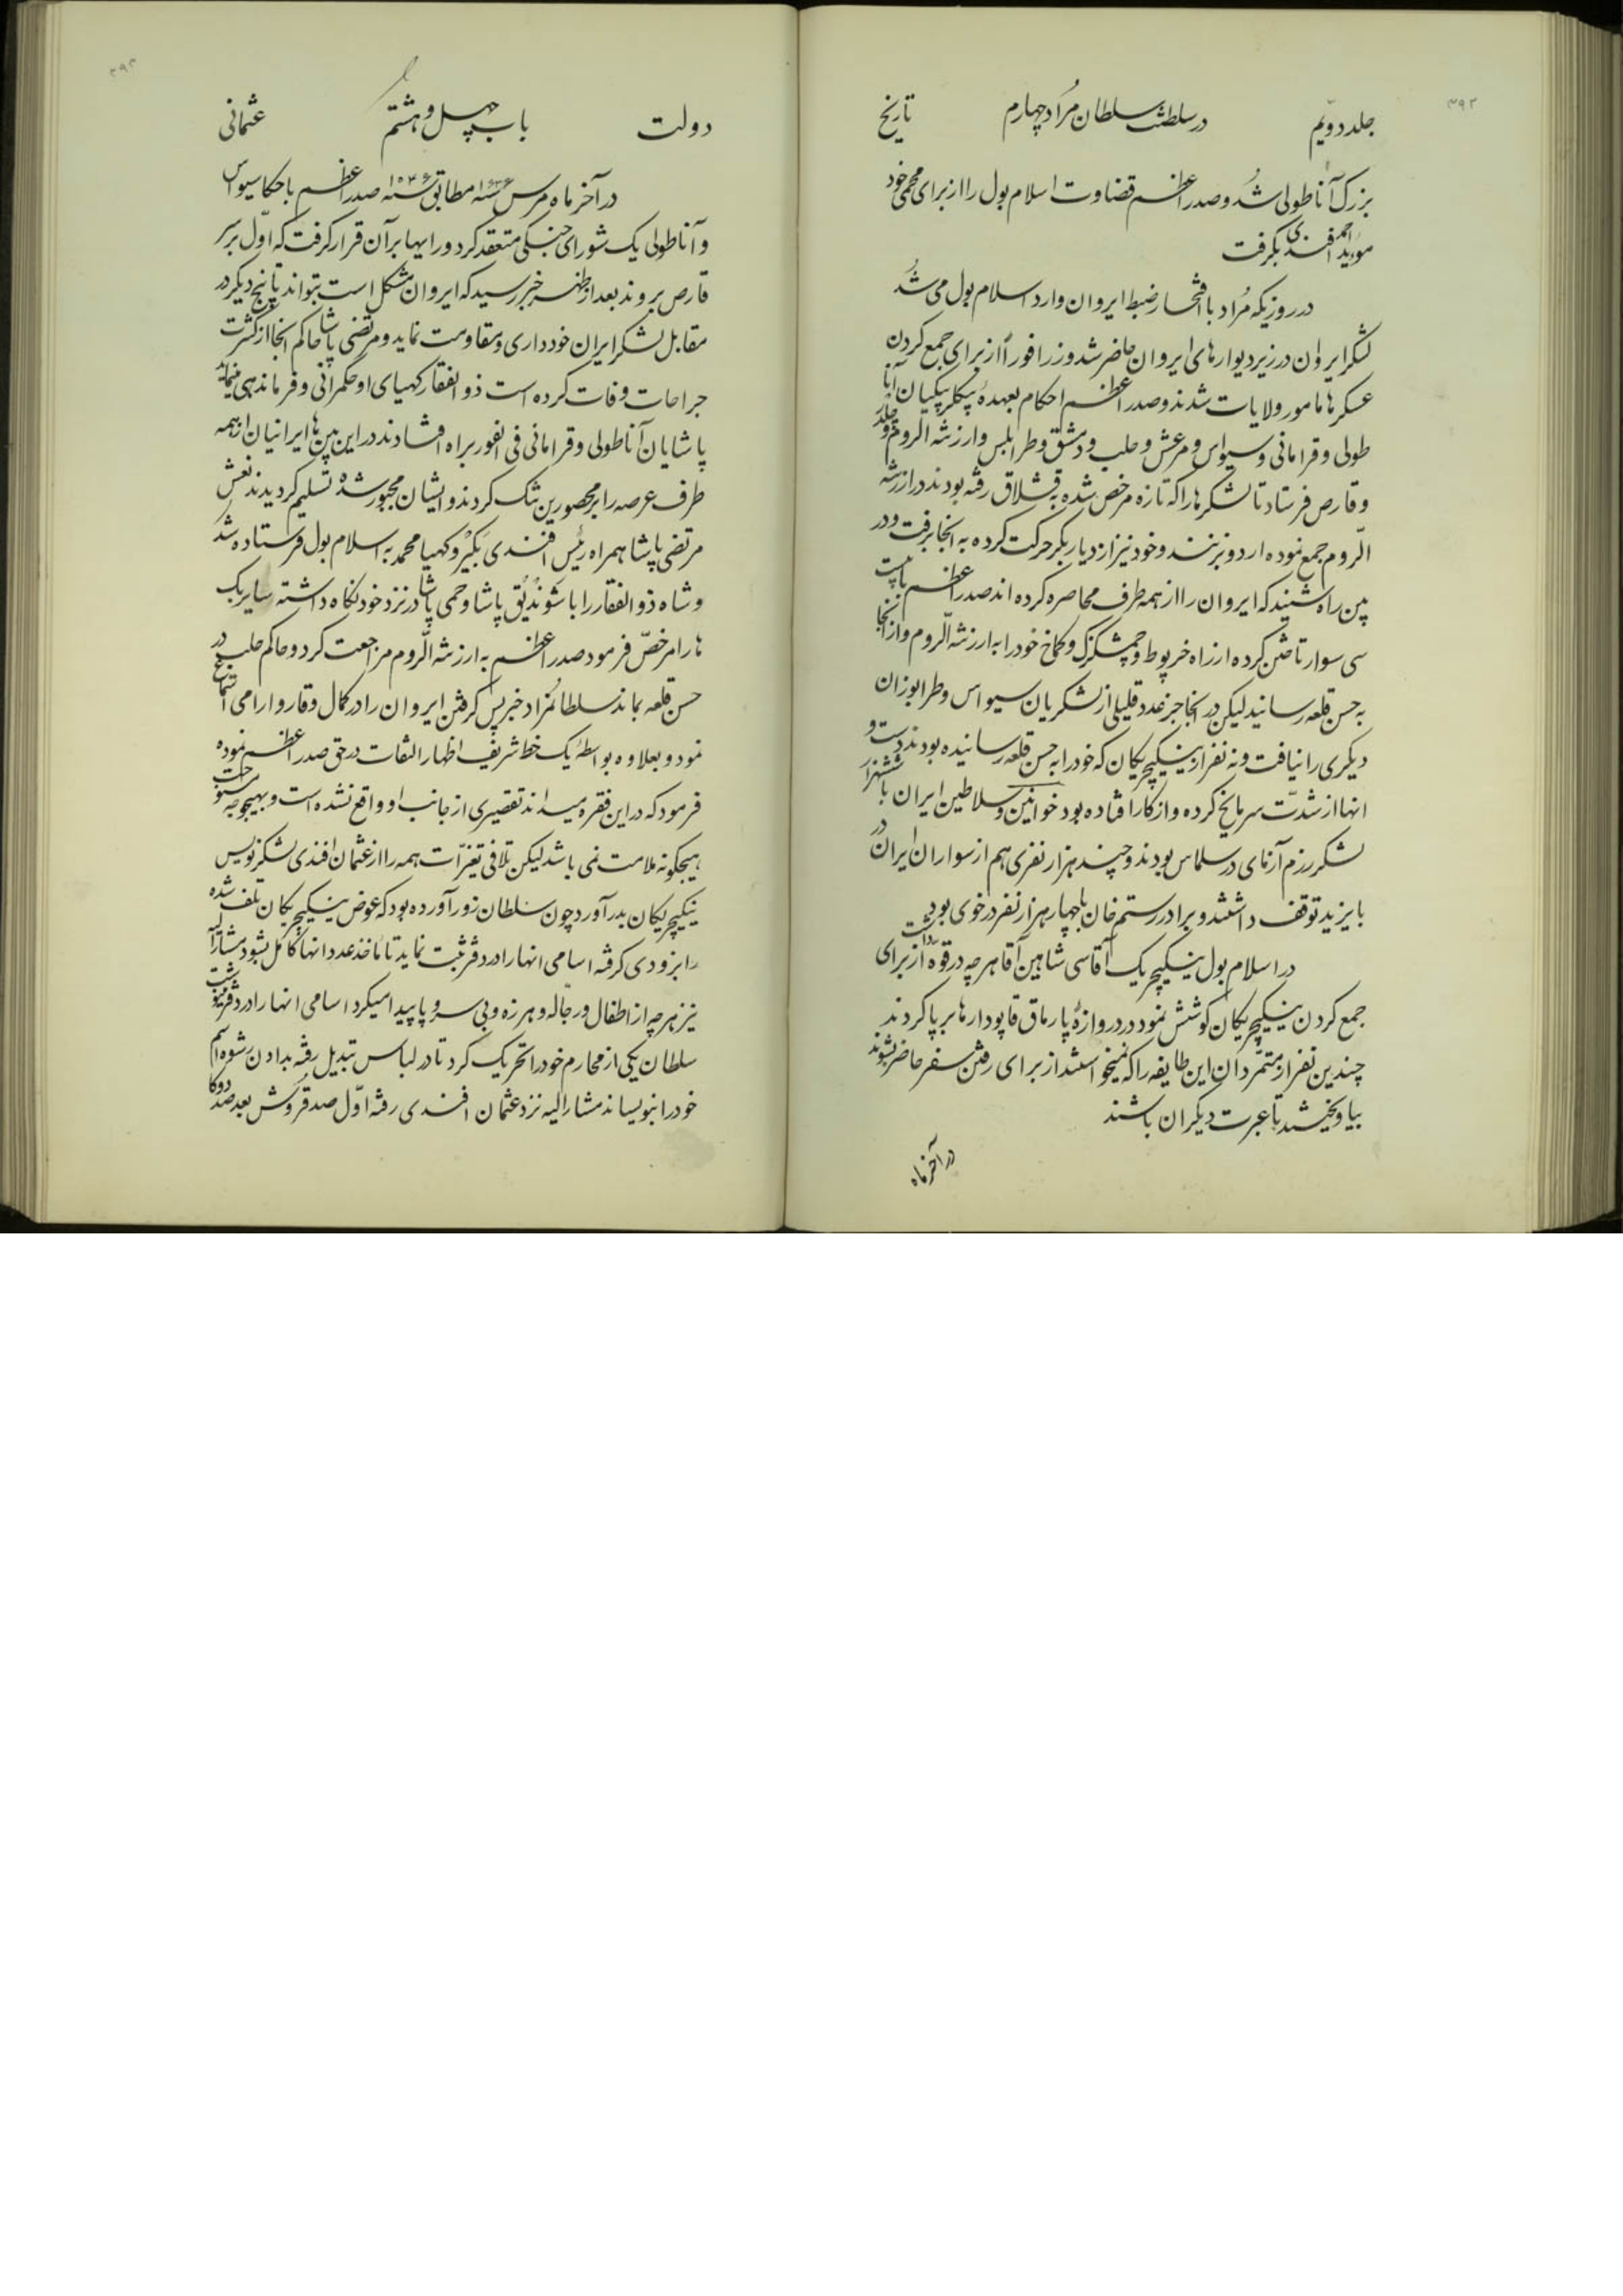 ۳۹۲
جلد دویّم در سلطنت سلطان مُراد چهارم تاریخ
بزرک آناطولی شُد و صدر اعظم قضاوت اسلام بول را از برای محمی خود
احمد افندی بکرفت
در روزیکه مُراد با افتخار ضبط ایروان وارد اسلام بول می شُد
لشکر ایران در زیر دیوارهای ایروان حاضر شد وزرا فوراً از برای جمع کردن
عسکرها مامور ولایات شدند و صدر اعظم احکام بعهدهٔ بیکلربیکیان آنا
طولی و قرامانی و سیواس و مرعش و حلب و دمشق و طرابلس و ارزنة الروم
و قارص فرستاد تا لشکرها را که تازه مرخص شده به قشلاق رفته بودند در ارزنة
الرّوم جمع نموده اردو بزنند و خود نیز از دیاربکر حرکت کرده به انجا برفت و در
بین راه شنید که ایروان را از همه طرف محاصره کرده اند صدر اعظم با بیست
سی سوار تاختن کرده از راه خرپوط و چمشکزک و کماخ خود را به ارزنة الرّوم و از انجا
به حسن قلعه رسانید لیکن در انجا جز عدد قلیلی از لشکریان سیواس و طرابوزان
دیکری را نیافت و نه نفر از ینیکچریکان که خود را به حسن قلعه رسانیده بودند دست و
انها از شدّت سرما یخ کرده و از کار افتاده بود خوانین و سلاطین ایران با ششهزار
لشکر رزم آزمای در سلماس بودند و چند هزار نفری هم از سواران ایران در
بایزید توقف داشتند و برادر رستم خان با چهار هزار نفر در خوی بود
در اسلام بول ینیکچریک آقاسی شاهین آقا هر چه در قوّه داشت از برای
جمع کردن ینیکچریکان کوشش نمود در دروازهٔ پارماق قاپو دارها بر پا کردند
چندین نفر از متمرّدان این طایفه را که نمیخواستند از برای رفتن سفر حاضر بشوند
بیاویختند تا عبرت دیکران باشند
در آخر ماه
۳۹۳
دولت باب چهل و هشتم عثمانی
در آخر ماه مرس سنه ۱۶۳۶ مطابق سنه ۱۰۴۶ صدر اعظم با حکام سیواس
و آناطولی یک شورای جنکی منعقد کرد و رایها بر آن قرار کرفت که اوّل بر سر
قارص بروند بعد از ظهر خبر رسید که ایروان مشکل است بتواند تا پنج روز دیکر در
مقابل لشکر ایران خودداری و مقاومت نماید و مرتضی پاشا حاکم انجا از کثرت
جراحات وفات کرده است ذو الفقار کهیای او حکمرانی و فرماندهی مینماید
پاشایان آناطولی و قرامانی فی الفور براه افتادند در این بین ها ایرانیان از همه
طرف عرصه را بر محصورین تنک کردند و ایشان مجبور شده تسلیم کردیدند نعش
مرتضی پاشا همراه رئیس افندی بَکیر و کهیا محمد به اسلام بول فرستاده شد
و شاه ذو الفقار را با شوندیُق پاشا و حمی پاشا در نزد خود نکاه داشته سایر بک
ها را مرخصّ فرمود صدر اعظم به ارزنة الرّوم مراجعت کرد و حاکم حلب در
حسن قلعه بماند سلطان مُراد خبر پس کرفتن ایروان را در کمال وقار و ارامی استماع
نمود و بعلاوه بواسطهٔ یک خط شریف اظهار التفات در حق صدر اعظم نموده
فرمود که در این فقره میداند تقصیری از جانب او واقع نشده است و بهیچوجه مستوجب
هیچکونه ملامت نمی باشد لیکن تلافی تغیرّات همه را از عثمان افندی لشکر نویس
ینیکچریکان بدر آورد چون سلطان زور آورده بود که عوض ینیکچریکان تلف شده
را بزودی کرفته اسامی انها را در دفتر ثبت نماید تا ماخذ عدد انها کامل بشود مشارالیه
نیز هر چه از اطفال و رجّاله و هرزه و بی سر و پا پیدا میکرد اسامی انها را در دفتر ثبت
سلطان یکی از محارم خود را تحریک کرد تا در لباس تبدیل رفته بدادن رشوه اسم
خود را بنویساند مشارالیه نزد عثمان افندی رفته اوّل صد قروش بعد صد دوکا